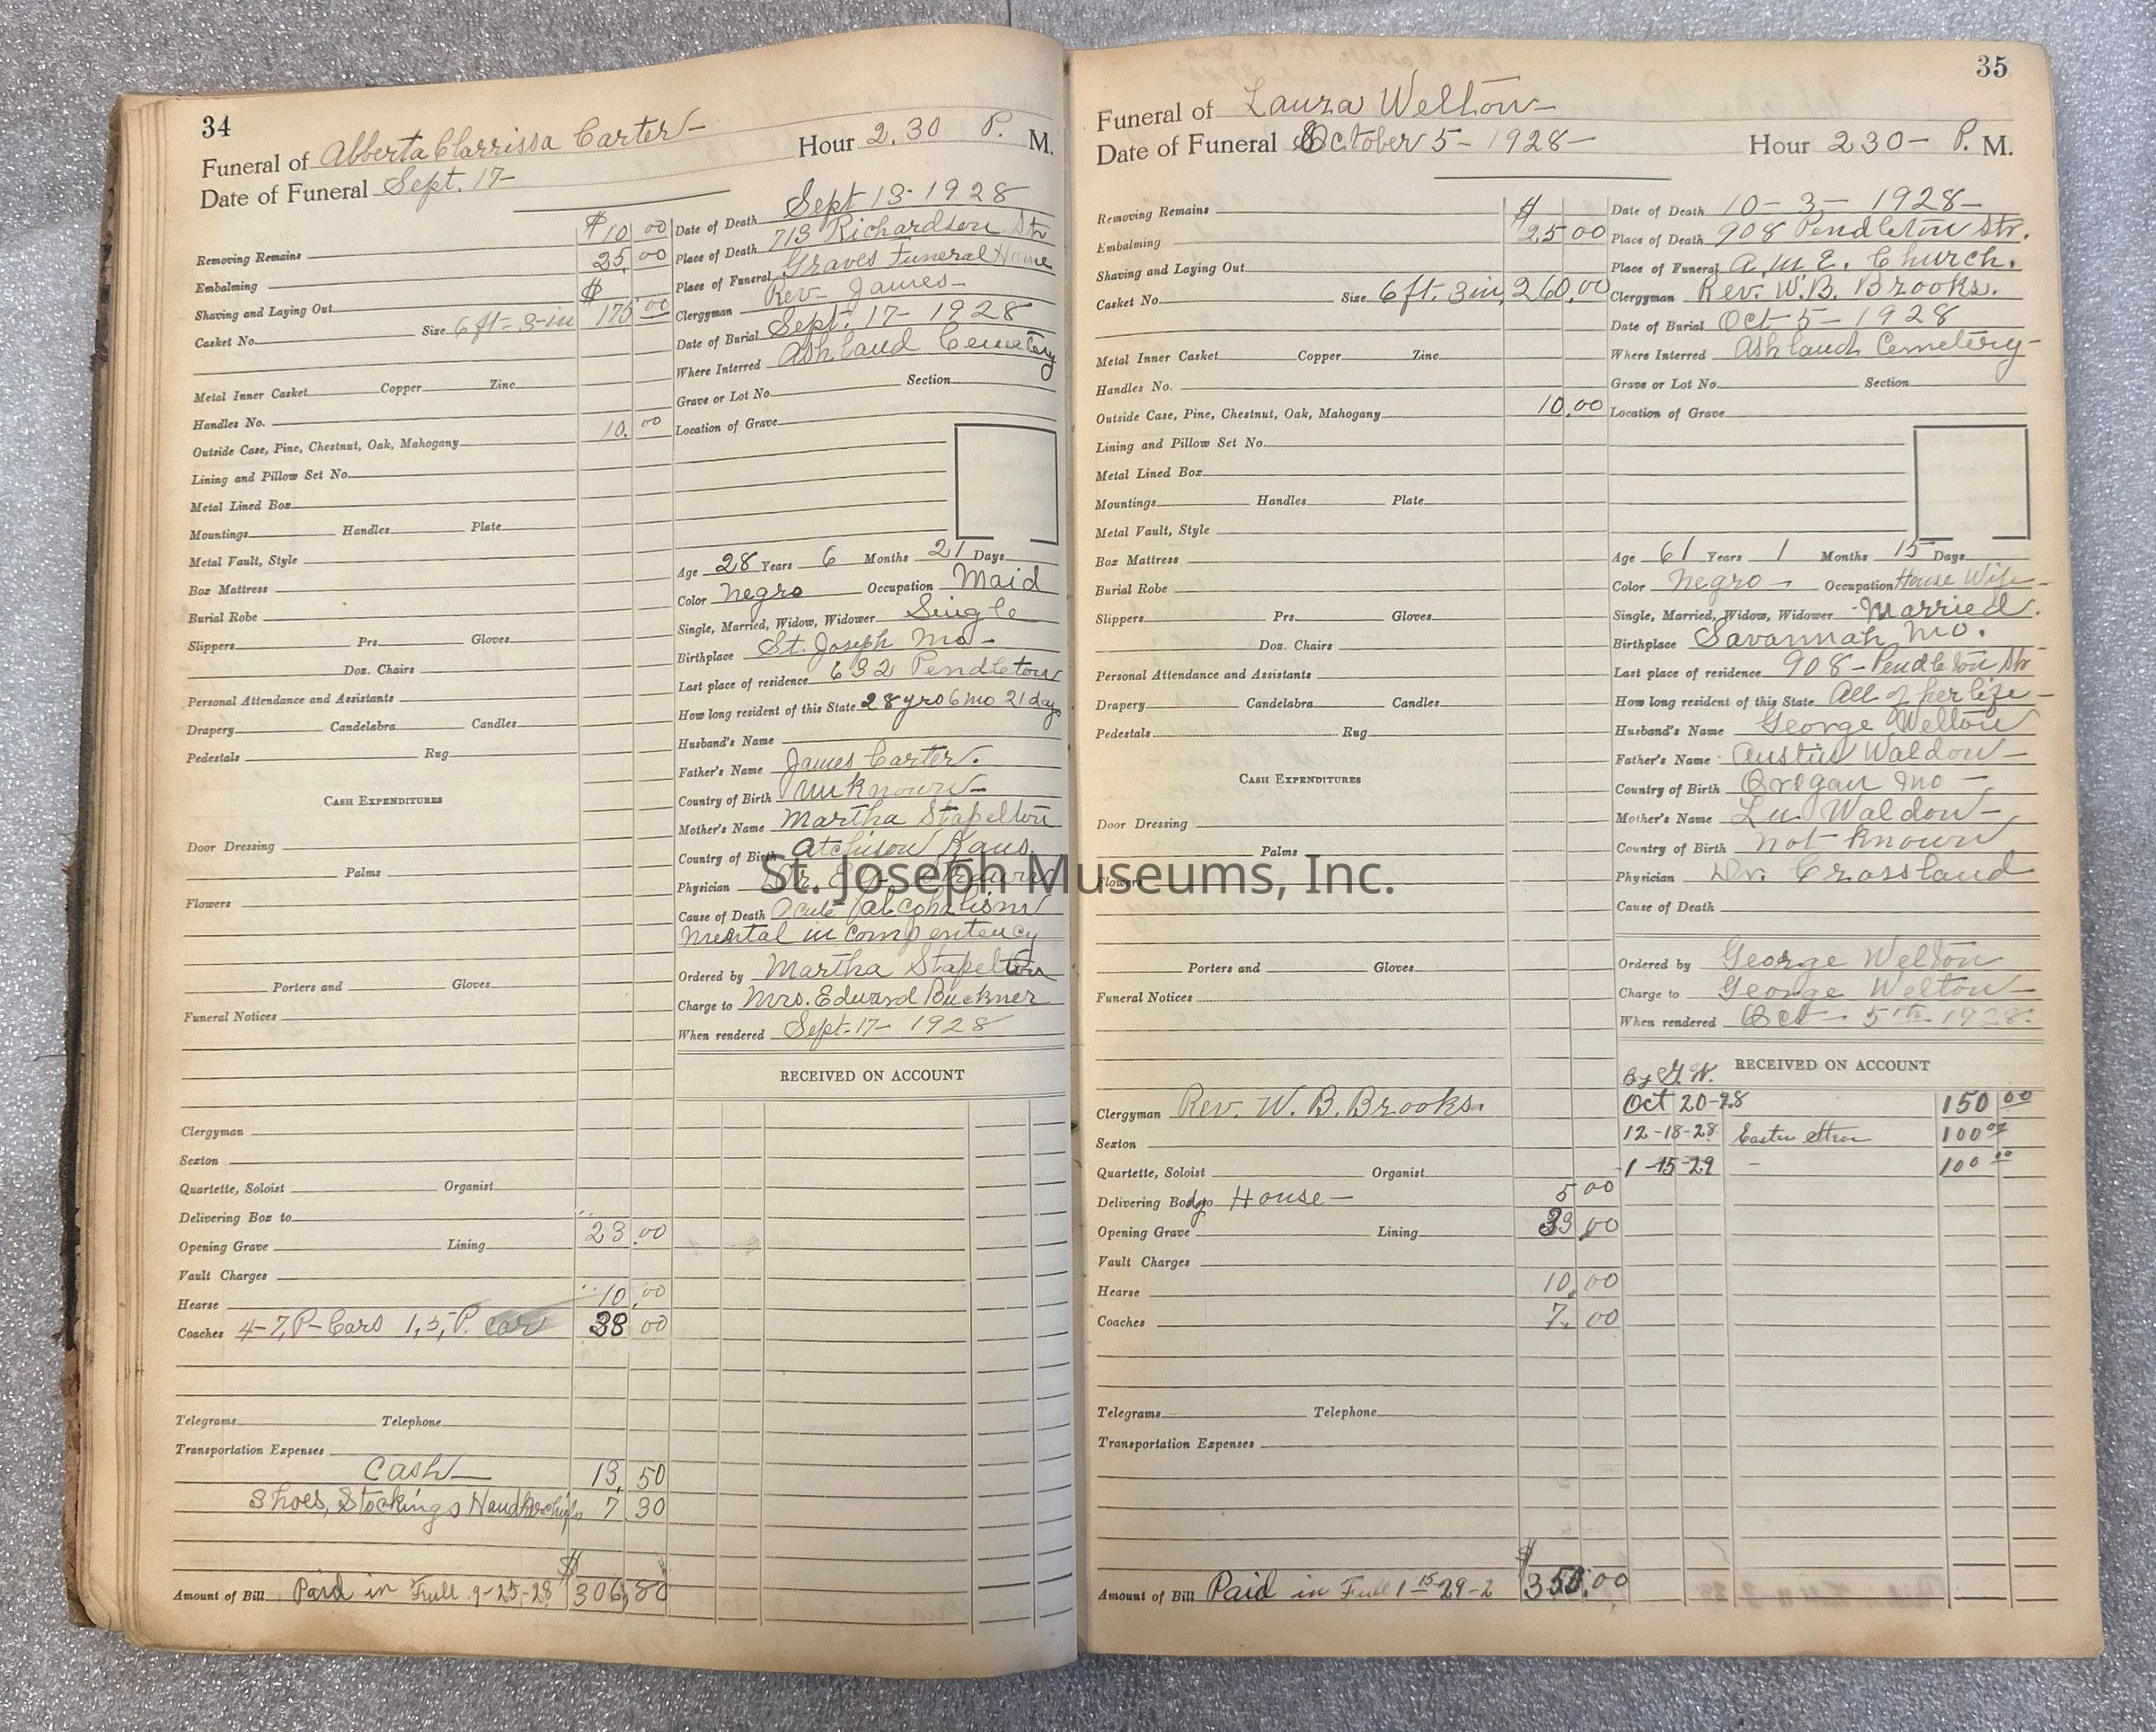 34
Funeral of Abberta Clarrissa Carter-
Hour 2.30 P. M.
Date of Funeral Sept. 17-
Removing Remains $10 00
Embalming 25. 00
Shaving and Laying Out $
Casket No. Size 6 ft-3-in 175 00
Metal Inner Casket Copper Zinc
Handles No.
Outside Case, Pine, Chestnut, Oak, Mahogany 10. 00
Lining and Pillow Set No.
Metal Lined Box
Mountings Handles Plate
Metal Vault, Style
Box Mattress
Burial Robe
Slippers Prs. Gloves
Doz. Chairs
Personal Attendance and Assistants
Drapery Candelabra Candles
Pedestals Rug
CASH EXPENDITURES
Door Dressing
Palms
Flowers
Porters and Gloves
Funeral Notices
Clergyman
Sexton
Quartette, Soloist Organist
Delivering Box to
Opening Grave Lining 23.00
Vault Charges
Hearse 10.00
Coaches 4-7, P-Cars 1, 5, P. car 38 00
Telegrams Telephone
Transportation Expenses
Cash 13, 50
Shoes, Stockings Handkerchiefs 7 30
Amount of Bill Paid in Full 9-25-28 $306,80
Date of Death Sept 13-1928
Place of Death 713 Richardson Str
Place of Funeral Graves Funeral Home
Clergyman Rev- James-
Date of Burial Sept. 17-1928
Where Interred Ashland Cemetery
Grave or Lot No. Section
Location of Grave
Age 28 Years 6 Months 21 Days
Color Negro Occupation Maid
Single, Married, Widow, Widower Single
Birthplace St. Joseph Mo-
Last place of residence 632 Pendleton
How long resident of this State 28 yrs 6 mo 21 days
Husband's Name
Father's Name James Carter.
Country of Birth unknown-
Mother's Name Martha Stapelton
Country of Birth Atchison Kans.
Physician Dr.
Cause of Death Acute (alcoholism
Mental incompentency
Ordered by Martha Stapelton
Charge to Mrs. Edward Buckner
When rendered Sept-17-1928
RECEIVED ON ACCOUNT
St. Joseph Museums, Inc.
35
Funeral of Laura Welton-
Date of Funeral October 5-1928- Hour 2 30- P. M.
Removing Remains $
Embalming 25 00
Shaving and Laying Out
Casket No. Size 6 ft. 3 in, 260.00
Metal Inner Casket Copper Zinc
Handles No.
Outside Case, Pine, Chestnut, Oak, Mahogany 10.00
Lining and Pillow Set No.
Metal Lined Box
Mountings Handles Plate
Metal Vault, Style
Box Mattress
Burial Robe
Slippers Prs. Gloves
Doz. Chairs
Personal Attendance and Assistants
Drapery Candelabra Candles
Pedestals Rug
CASH EXPENDITURES
Door Dressing
Palms
Flowers
Porters and Gloves
Funeral Notices
Clergyman Rev. W. B. Brooks.
Sexton
Quartette, Soloist Organist
Delivering Body to House- 5 00
Opening Grave Lining 33.00
Vault Charges
Hearse 10.00
Coaches 7. 00
Telegrams Telephone
Transportation Expenses
Amount of Bill Paid in Full 1-15-29-2 $350.00
Date of Death 10-3-1928-
Place of Death 908 Pendleton Str.
Place of Funeral A.M.E. Church.
Clergyman Rev. W.B. Brooks.
Date of Burial Oct-5-1928
Where Interred Ashland Cemetery-
Grave or Lot No. Section
Location of Grave
Age 61 Years 1 Months 15 Days
Color Negro- Occupation House Wife-
Single, Married, Widow, Widower Married.
Birthplace Savannah, Mo.
Last place of residence 908-Pendleton Str-
How long resident of this State All of her life-
Husband's Name George Welton
Father's Name Austin Waldow-
Country of Birth Oregan Mo-
Mother's Name Lu Waldow-
Country of Birth not known
Physician Dr. Crossland
Cause of Death
Ordered by George Welton
Charge to George Welton-
When rendered Oct- 5th-1928.
RECEIVED ON ACCOUNT
By G. W.
Oct 20-28 150 00
12-18-28 Easter Star 100 00
1-15-29 - 100 00